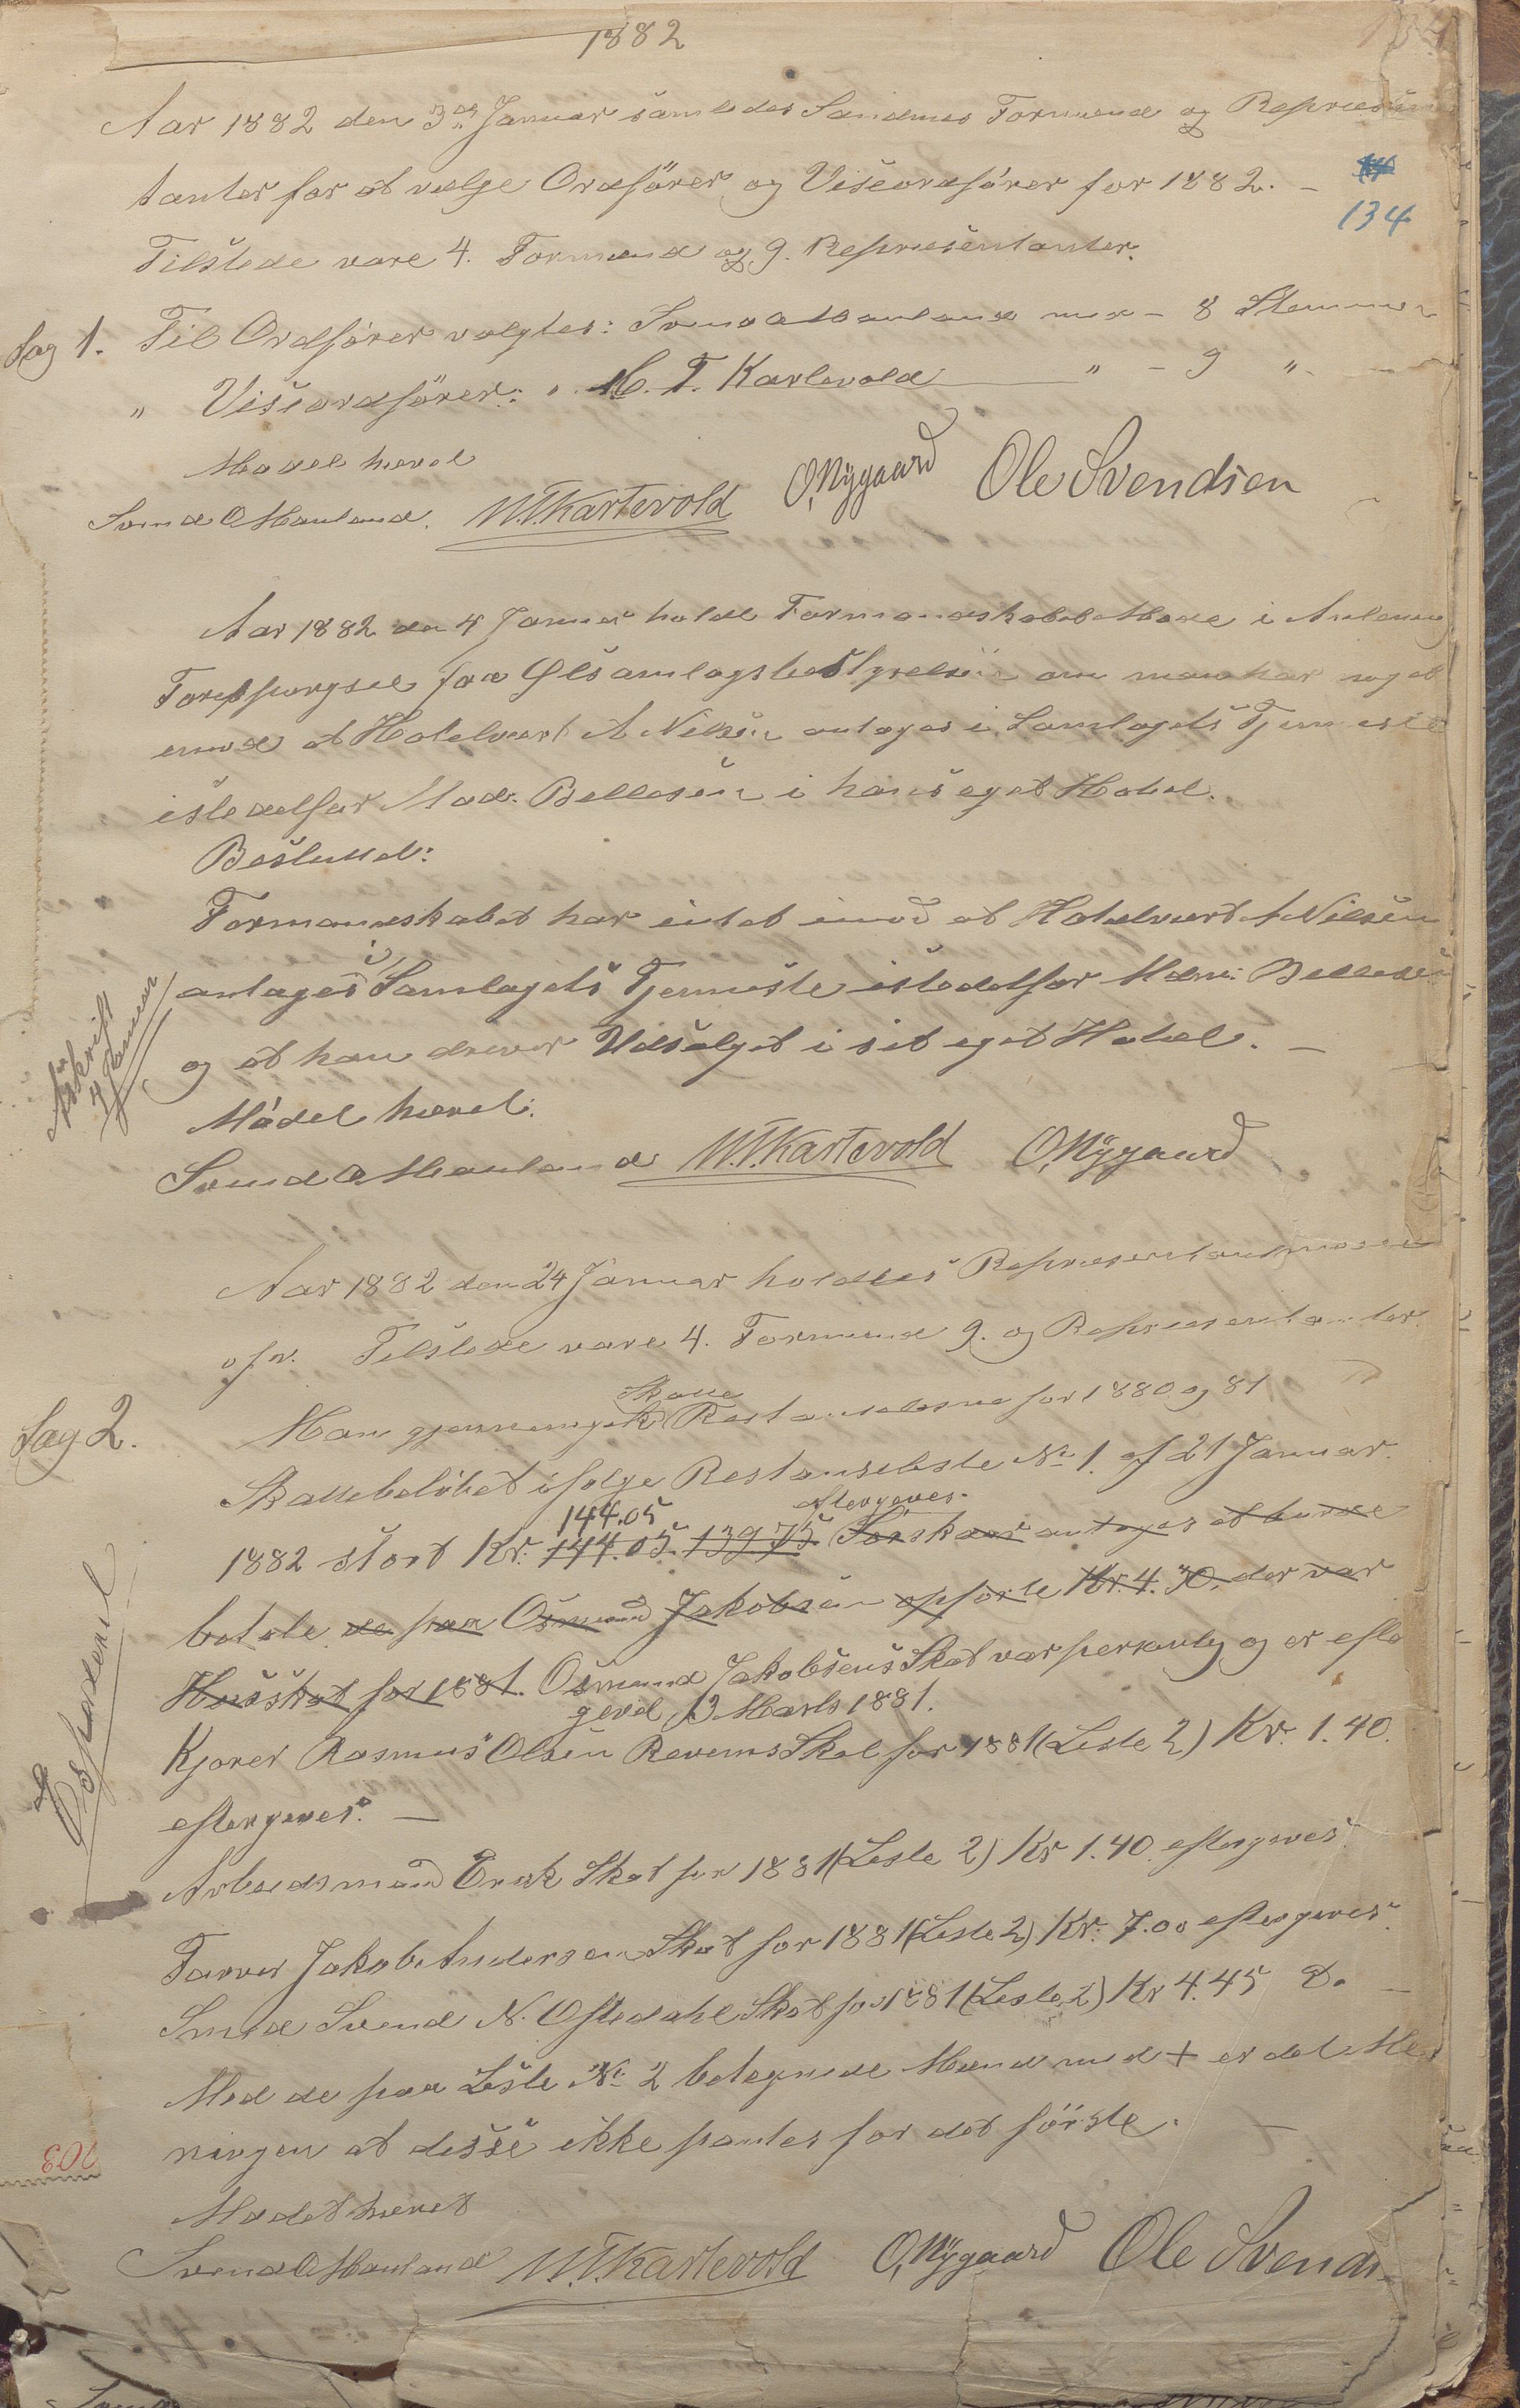 1882
Aar 1882 den 3de Januar samledes Sandnes Formænd og Repræsen
tanter for at vælge Ordfører og Viseordfører for 1882. –
134
Tilstede vare 4. Formænd og 9. Repræsentanter.
Sag 1. Til Ordfører valgtes: Svend O Hauland med – 8 Stemmer
„ Viseordfører: „ M. T. Kartevold „ – 9 „ –
Mødet hævet
Svend O Hauland. M.T. Kartevold O, Nÿgaard Ole Svendsen
Aar 1882 den 4 Januar holdt Formandskabet Møde i Anledning
Forespørgsel fra Ølsamlagsbestyrelsen om man har noget
imod at Hotelvært A Nilsen antages i Samlagets Tjeneste
istedetfor Mad. Bellesen i hans eget Hotel.
Besluttet:
Formandskabet har intet imod at Hotelvært A Nilsen
antages i Samlagets Tjenneste istedetfor Mdm: Bellesen
og at han driver Udsalget i sit eget Hotel. –
Afskrift
4 Januar
Mødet hævet:
Svend O Hauland M.T. Kartevold O, Nÿgaard
Aar 1882 den 24 Januar holdtes Repræsentantmøde
ofv. Tilstede vare 4. Formænd 9. og Repræsentanter.
Sag 2.
Skatte
Man gjennemgik Restanselisterne for 1880 og 81
Skattebeløbet ifølge Restanseliste No 1. af 21 Januar.
144.05 eftergives.
1882 stort Kr. 144.05. 139.75 antages at burde
betale de paa Osmund Jakobsen opførte Kr. 4. 30, der var
Husskat for 1881. Osmund Jakobsens Skat var personlig og er efter
givet 13 Marts 1881.
Expederet
Kjører Rasmus Olsen Revems Skat for 1881 (Liste 2) Kr. 1.40.
eftergives. –
Arbeidsmand Erik Skat for 1881 (Liste 2) Kr 1.40 eftergives.
Farver Jakob Andersen Skat for 1881 (Liste 2) Kr. 7.00 eftergives.
Smed Svend N. Oftedahl Skat for 1881 (Liste 2) Kr 4.45 Do –
Med de paa Liste No 2 betegnede Mænd med + er det Me
ningen at disse ikke pantes for det første. –
203
Mødet hævet
Svend O Hauland M.T. Kartevold O, Nÿgaard Ole Svends